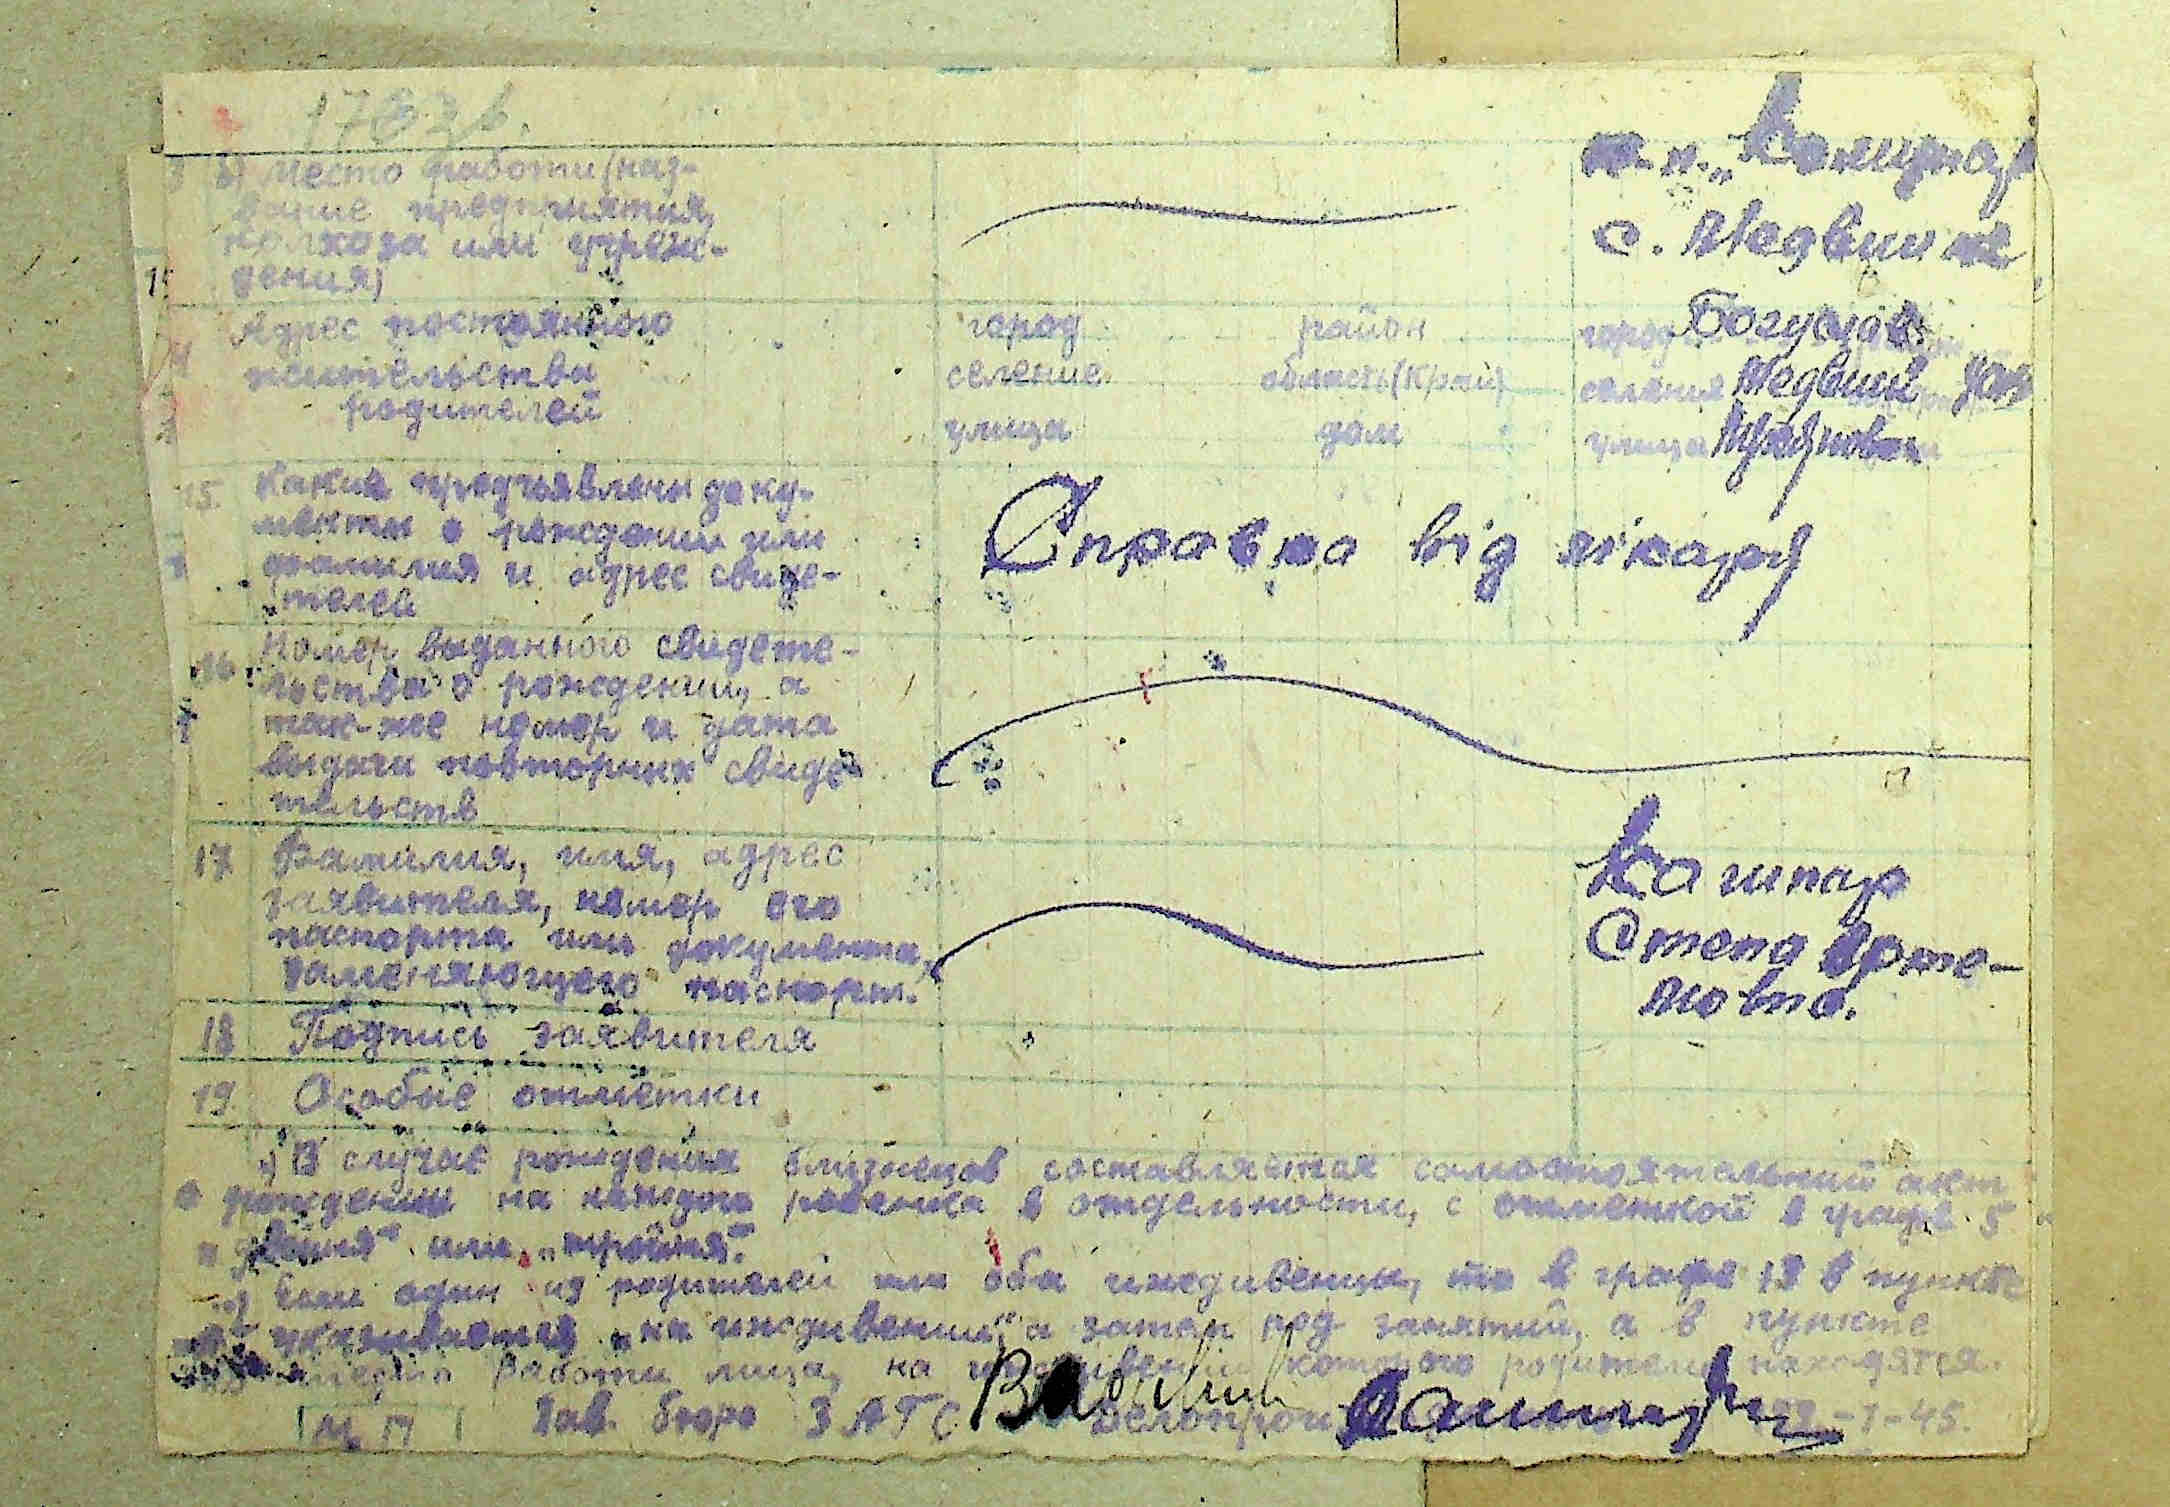 в) Место работы (наз-
вание предприятия,
колхоза или учреж-
дения)
с. Медвин
Адрес постоянного
жительства
родителей
город район город Богуслав
селение область (край) селения Медвин
улица дом улица
15. Какие предъявлены доку-
менты о рождении или
фамилия и адрес свиде-
телей
Справка від лікаря
16. Номер выданного свидете-
льства о рождении, а
так-же номер и дата
выдачи повторных свиде-
тельств
17 Фамилия, имя, адрес
заявителя, номер его
паспорта или документа,
заменяющего паспорт.
Кашпар
Степа Арте-
мовна.
18 Подпись заявителя
19. Особые отметки
В случае рождения близнецов составляется самостоятельный акт
о рождении на каждого ребенка в отдельности, с отметкой в графе 5
"двойня" или "тройня".
Если один из родителей или оба иждивенцы, то в графе 13 в пункте
указывается "на иждивении", а затем род занятий, а в пункте
место работы лица, на иждивении которого родители находятся.
М П Зав. бюро ЗАГС